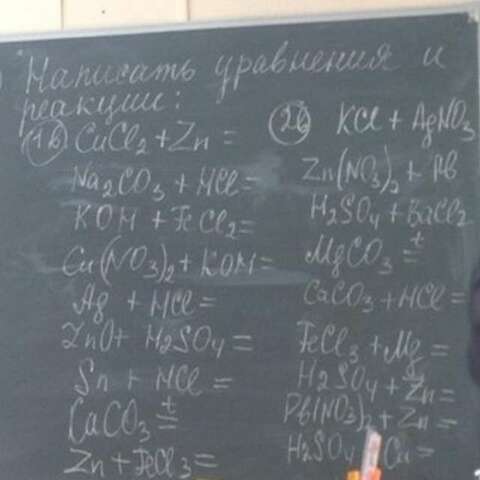 Написать уравнения и
реакции:
1в CuCl₂ + Zn =
Na₂CO₃ + HCl =
KOH + FeCl₂ =
Cu(NO₃)₂ + KOH =
Ag + HCl =
ZnO + H₂SO₄ =
Sn + HCl =
CaCO₃ t =
Zn + FeCl₃ =
2в KCl + AgNO₃
Zn(NO₃)₂ + Pb
H₂SO₄ + BaCl₂
MgCO₃ t =
CaCO₃ + HCl =
FeCl₃ + Mg =
H₂SO₄ + Zn =
Pb(NO₃)₂ + Zn =
H₂SO₄ Cu =